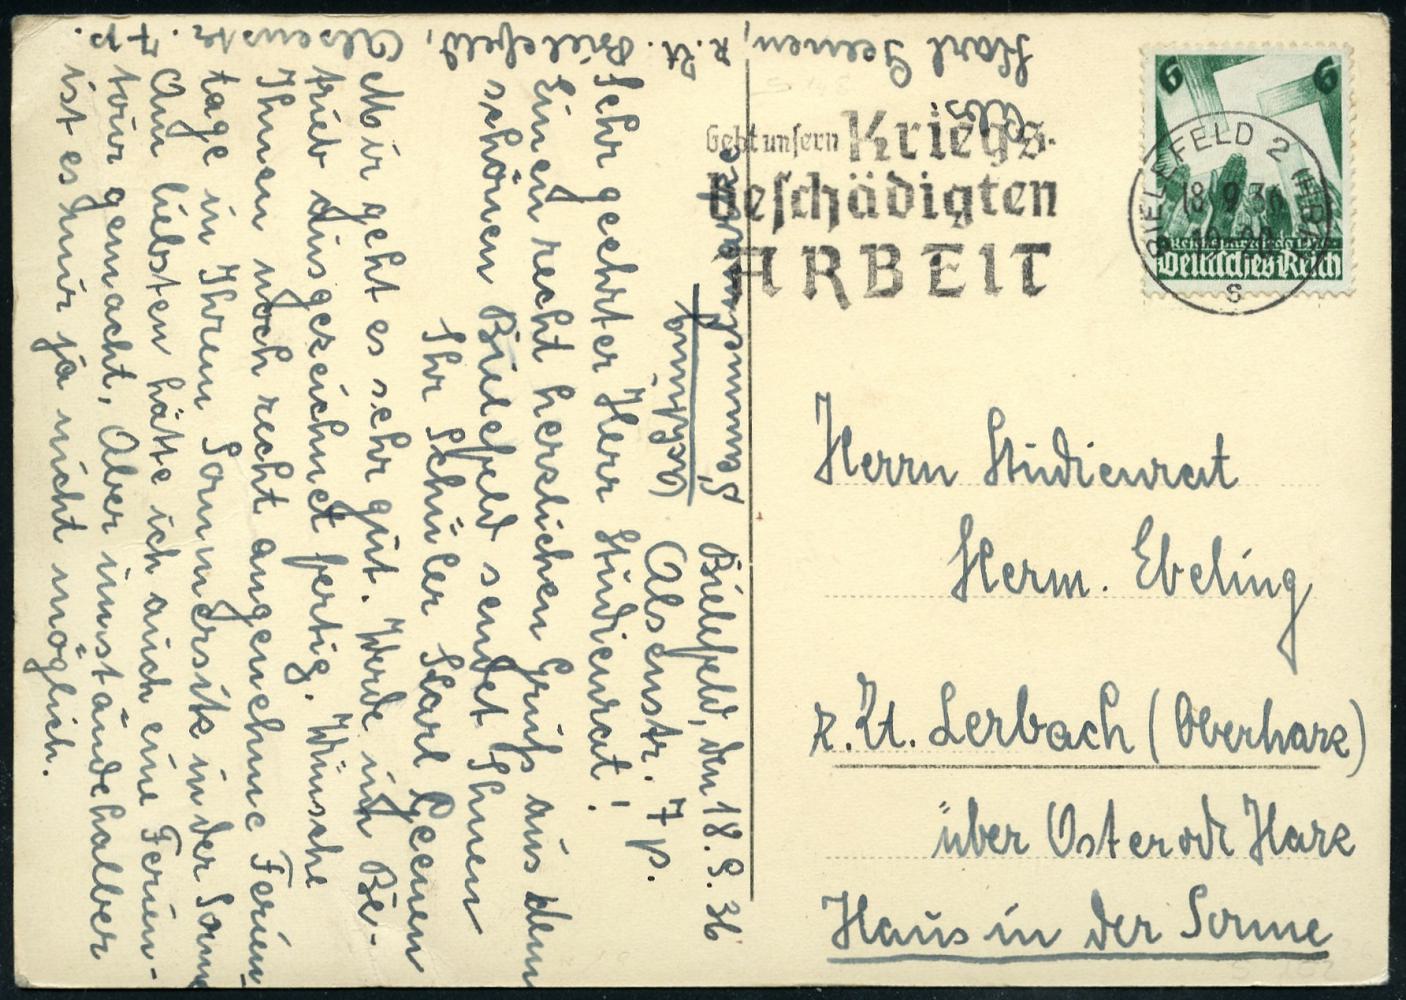 Karl Geenen, z. Zt. Bielefeld,
Alsenstr. 7 p.
Sammelmarke
Achtung!
Bielefeld, den 18. 9. 36
Alsenstr. 7 p.
Sehr geehrter Herr Studienrat!
Einen recht herzlichen Gruß aus dem
schönen Bielefeld sendet Ihnen
Ihr Schüler Karl Geenen
Mir geht es sehr gut. Werde im Be-
trieb ausgezeichnet fertig. Wünsche
Ihnen noch recht angenehme Ferien-
tage in Ihrem Sommersitz in der Sonne
Am liebsten hätte ich auch eine Ferien-
tour gemacht, Aber umständehalber
ist es mir ja nicht möglich.
Gebt unsern Kriegs-
beschädigten
ARBEIT
6 6
Deutsches Reich
BIELEFELD 2
18.9.36
s
Herrn Studienrat
Herm. Ebeling
z. Zt. Lerbach (Oberharz)
über Osterode Harz
Haus in der Sonne